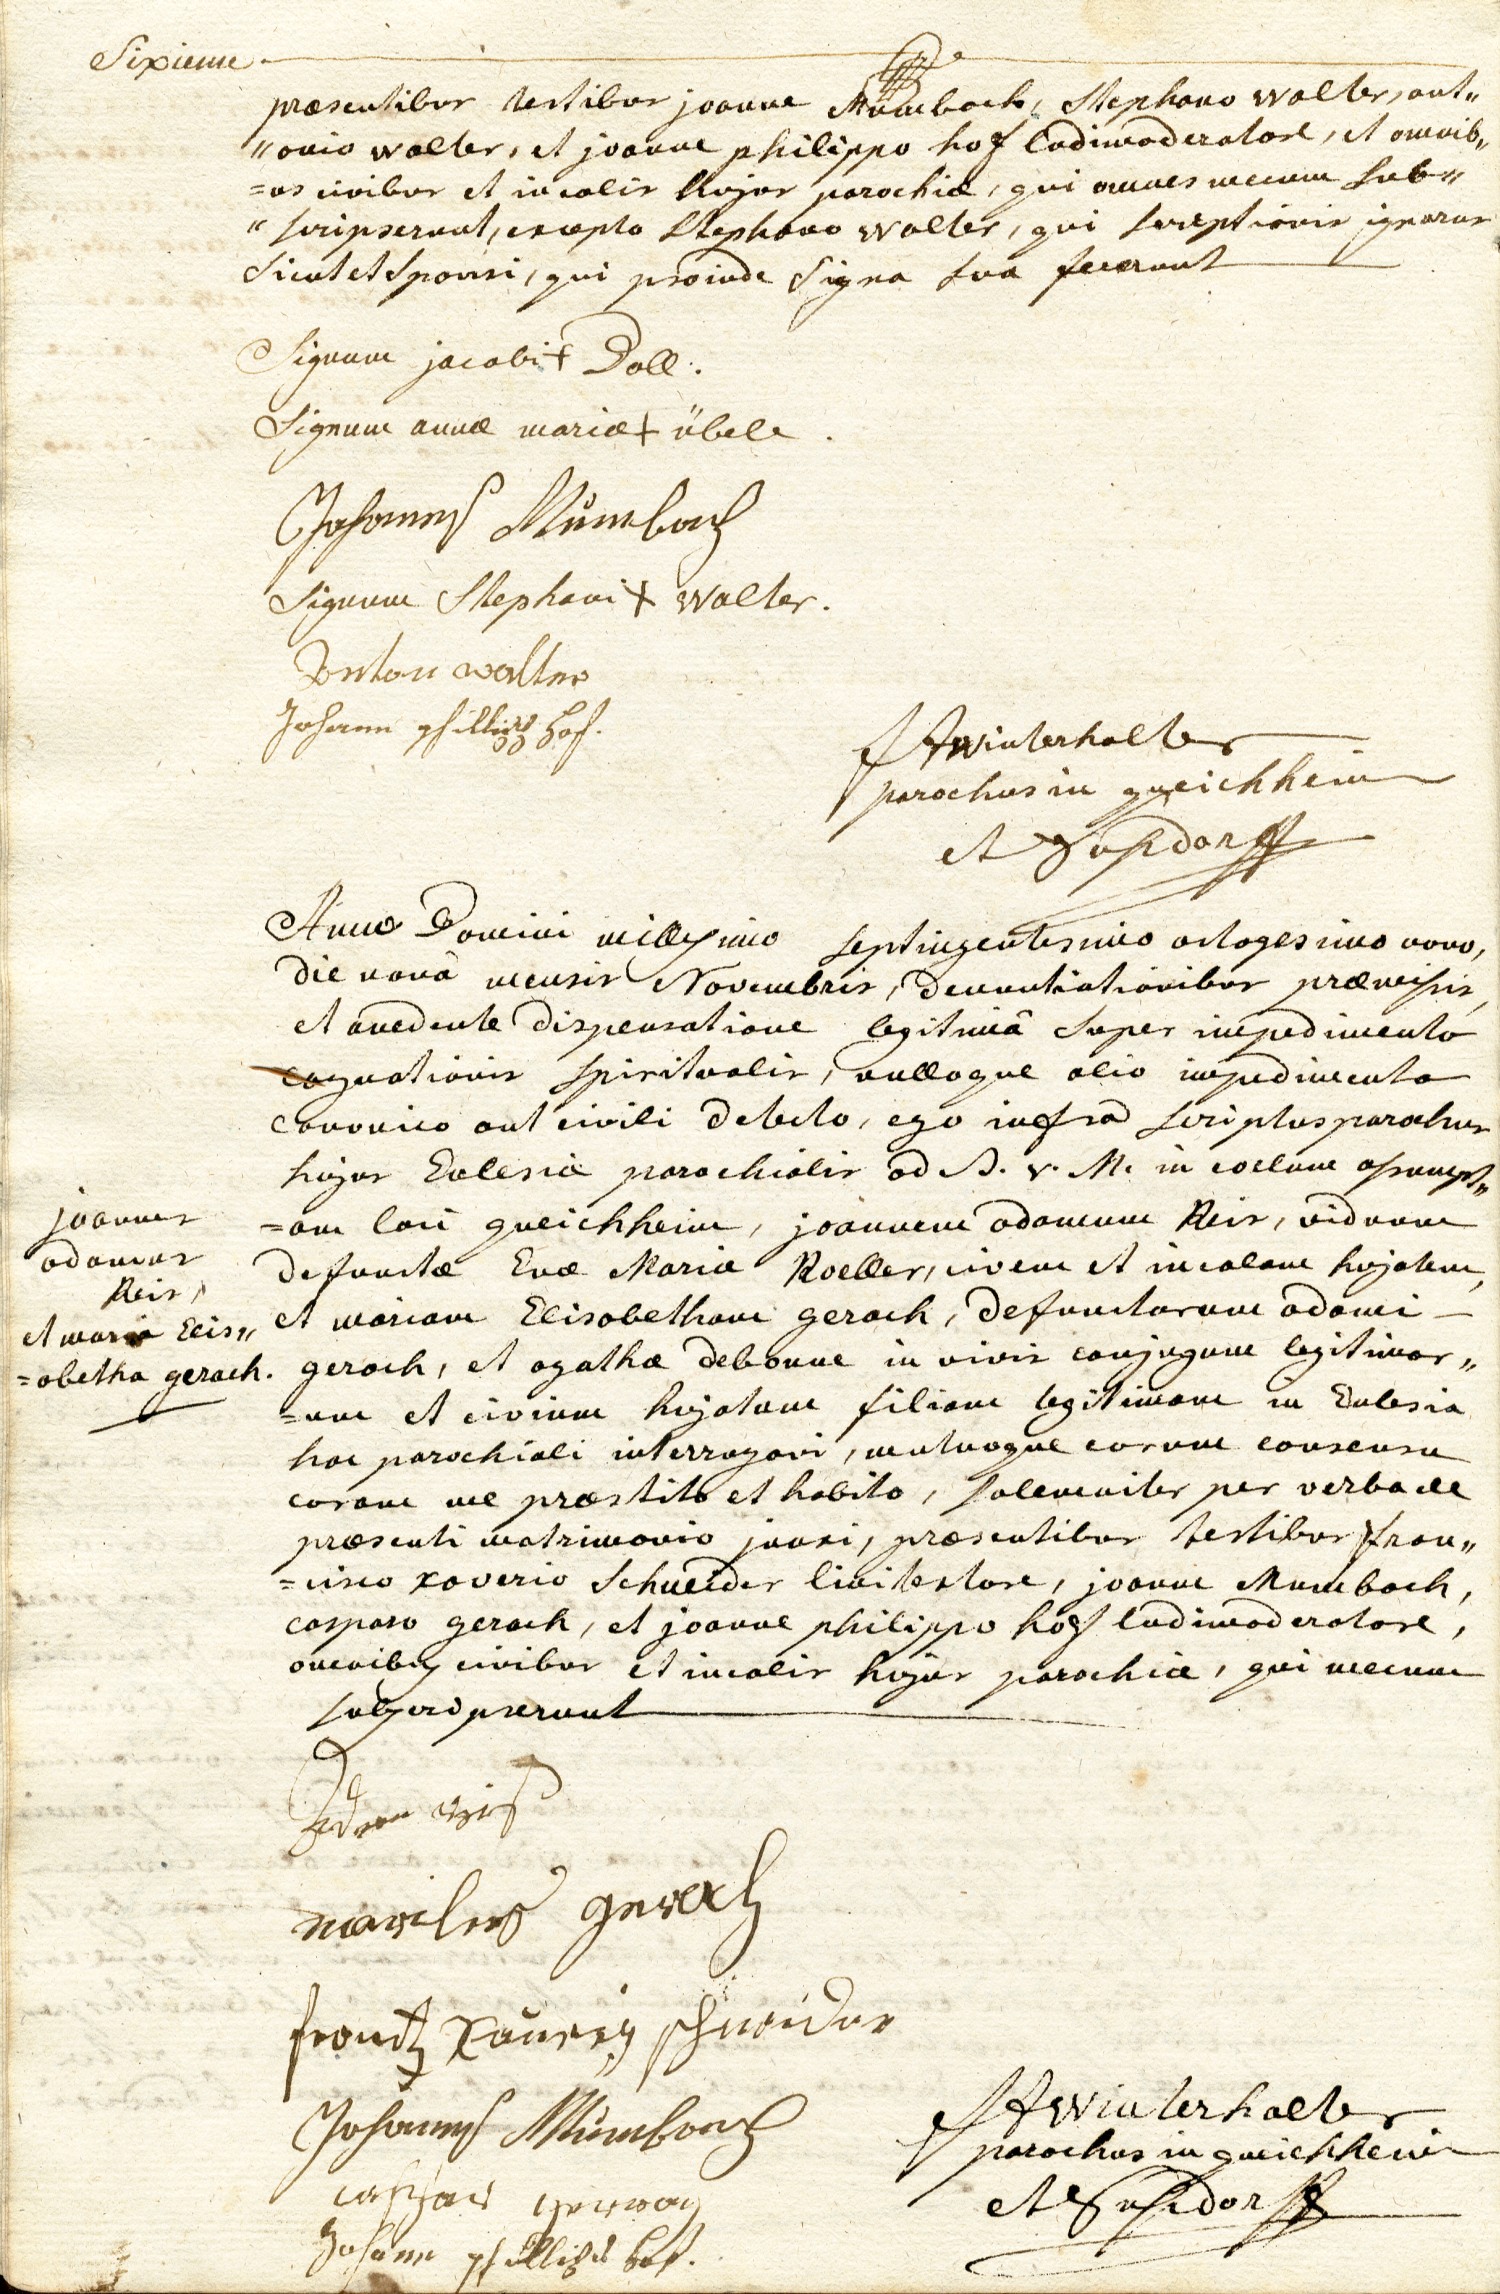 Sixieme
præsentibus testibus joanne Mumbach, Stephano Walter, ant"
"onio Walter, et joanne philippo hof ludimoderatore, et omnib"
=us civibus et incolis hujus parochiæ, qui omnes mecum sub"
"scripserunt, excepto Stephano Walter, qui scriptionis ignarus
sicut et sponsi, qui proinde signa sua fecerunt
Signum jacobi + Doll.
Signum annæ mariæ + übele.
Johannes Mumbach
Signum Stephani + Walter.
Anton Walter
Johann phillips hof.
Winterhalter
parochus in queichheim
et
Anno Domini millesimo septingentesimo octogesimo nono,
die nonâ mensis Novembris, denuntiationibus præmissis,
et accedente dispensatione legitimâ super impedimento
cognationis spiritualis, nulloque alio impedimento
canonico aut civili detecto, ego infra scriptus parochus
hujus Eclesiæ parochialis ad B. v. M. in coelum assumpt"
=am loci queichheim, joannem adamum Reis, viduum
defunctæ Evæ Mariæ Koeller, civem et incolam hujatem,
joannes
adamus
Reis,
et maria Elis"
=abetha gerach.
et mariam Elisabetham gerach, defunctorum adami
gerach, et agathæ debonne in vivis conjugum legitimor"
=um et civium hujatum filiam legitimam in Eclesia
hac parochiali interrogavi, mutuoque eorum consensu
coram me præstito et habito, solemniter per verba de
præsenti matrimonio junxi, præsentibus testibus fran"
=cisco xaverio Schneider licitatore, joanne Mumbach,
casparo gerach, et joanne philippo hof ludimoderatore,
omnibus civibus et incolis hujus parochiæ, qui mecum
subscripserunt
Adam Reis
marilies gerach
frantz Xaveri schneider
Johannes Mumbach
caspar gerach
Johann phillips hof.
Winterhalter
parochus in queichheim
et